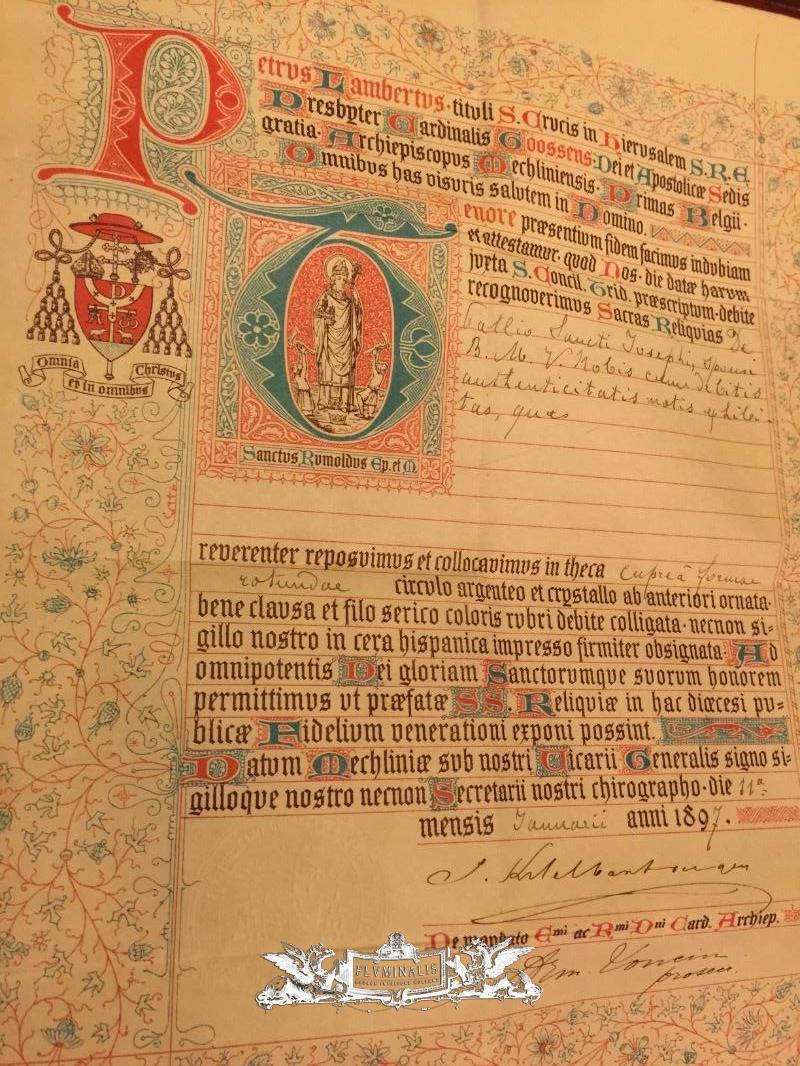 Petrus Lambertus· tituli S. Crucis in Hierusalem S.R.E
Presbyter Cardinalis Goossens: Dei et Apostolicæ Sedis
gratia· Archiepiscopus Mechliniensis· Primas Belgii·
Omnibus has visuris salutem in Domino.
Tenore præsentium fidem facimus indubiam
et attestamur· quod Nos· die datæ harum
juxta S. Concil. Trid. præscriptum· debite
recognoverimus Sacras Reliquias De
Pallio Sancti Josephi, Sponsi
B. M. V. Nobis cum debitis
authenticitatis notis exhibi-
tas, quas
D
Omnia Christus
et in omnibus
Sanctus Rumoldus Ep. et M.
reverenter reposuimus et collocavimus in theca cupreâ formae
rotundae circulo argenteo et crystallo ab anteriori ornata·
bene clausa et filo serico coloris rubri debite colligata· necnon si=
gillo nostro in cera hispanica impresso firmiter obsignata: Ad
omnipotentis Dei gloriam Sanctorumque suorum honorem
permittimus ut præfatæ SS. Reliquiæ in hac diœcesi pu=
blicæ Fidelium venerationi exponi possint.
Datum Mechliniæ sub nostri Vicarii Generalis signo si=
gilloque nostro necnon Secretarii nostri chirographo· die 11ª
mensis Januarii anni 1897.
De mandato Emi ac Rmi Dni Card. Archiep.
FLVMINALIS